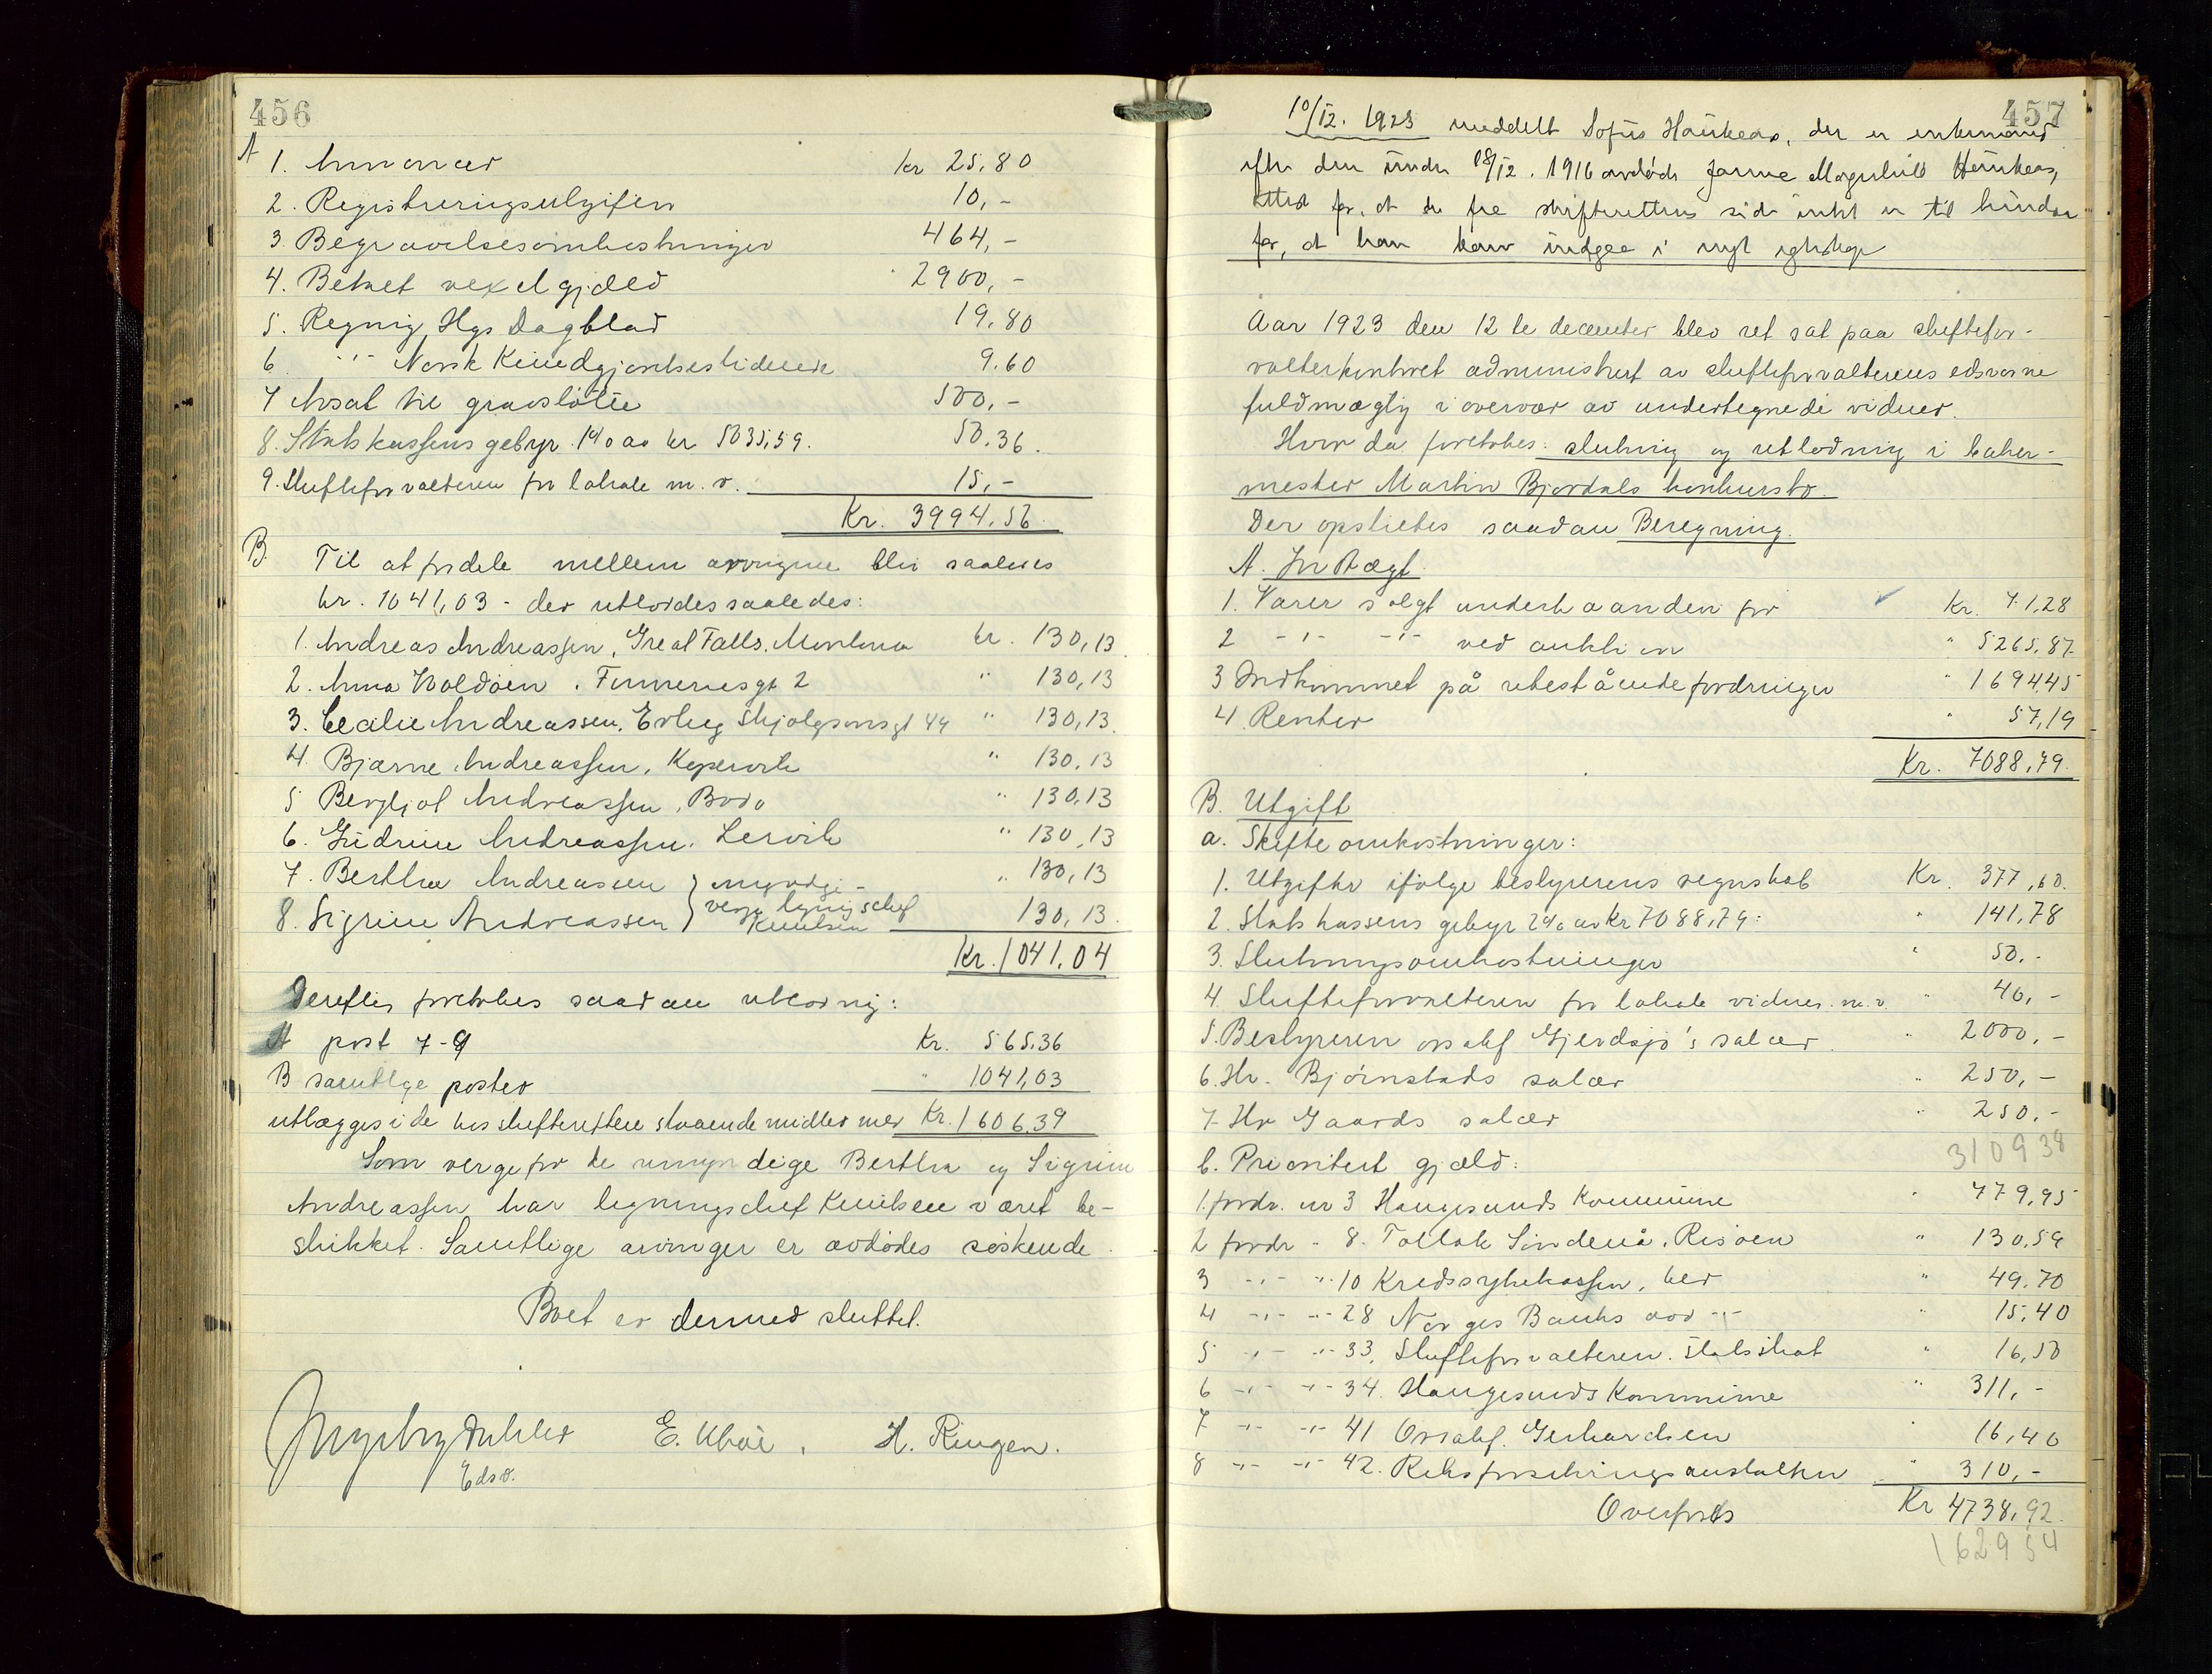 456
A 1. Annoncer kr 25,80
2. Registreringsutgifter 10,-
3. Begravelsesomkostninger 464,-
4. Betalt vexelgjæld 2900,-
5. Regning Hgs Dagblad 19,80
6. -"- Norsk Kundgjørelsestidende 9.60
7 Avsat til gravstøtte 500,-
8. Statskassens gebyr 1% av kr 5035,59. 50.36.
9. Skifteforvalteren for lokale m. v. 15,-
Kr. 3994.56
B. Til at fordele mellem arvingene blir saaledes
kr. 1041,03 - der utloddes saaledes:
1. Andreas Andreassen, Great Falls. Montana kr. 130,13
2. Anna Voldøen. gt 2 " 130,13
3. Cecilie Andreassen, Erling Skjalgsonsgt 44 " 130,13.
4. Bjarne Andreassen, Kopervik " 130,13
5 Bergljot Andreassen, Bodø " 130,13
6. Gudrun Andreassen. Lervik " 130,13
7. Bertha Andreassen } umyndige - " 130,13
8. Sigrun Andreassen } verge ligningschef Knutsen 130,13.
Kr. 1041,04
Derefter foretokes saadan utlodning:
A post 7-9 Kr. 565.36
B samtlige poster " 1041,03
utlægges i de hos skifteretten staaende midler med Kr. 1606.39
Som verge for de umyndige Bertha og Sigrun
Andreassen har ligningschef Knutsen været be-
skikket. Samtlige arvinger er avdødes søskende.
Boet er dermed sluttet.
Edsv. E. H. Ringen.
457
10/12. 1923 meddelt Sofus Haukeas, der er enkemand
efter den under 18/12. 1916 avdøde Magnhild Haukeas,
attest for, at der fra skifterettens side intet er til hinder
for, at han kan indgaa i nyt egteskap
Aar 1923 den 12te december blev ret sat paa skiftefor-
valterkontoret administrert av skifteforvalterens edsvorne
fuldmægtig i overvær av undertegnede vidner.
Hvor da foretokes: slutning og utlodning i baker-
mester Martin Bjordals konkursbo.
Der opsættes saadan Beregning.
A. Indtægt.
1. Varer solgt underhaanden for Kr. 71,28
2 -"- -"- ved auktion " 5265,87
3 Indkommet på utestående fordringer " 1694,45
4 Renter " 57,19
Kr. 7088,79.
B. Utgift
a. Skifteomkostninger:
1. Utgifter ifølge bestyrerens regnskab Kr. 377,60.
2. Statskassens gebyr 2% av kr 7088,79: " 141,78
3. Slutningsomkostninger " 50.-
4. Skifteforvalteren for lokale vidner. m. v. " 40,-
5. Bestyreren ovsakf Gjerdsjø's salær. " 2000,-
6. Hr. Bjørnstads salær " 250,-
7. Hr Gaards salær " 250.-
310938
b. Prioritert gjæld:
1. fordr. nr 3 Haugesunds Kommune " 779,95
2 fordr " 8. Tollak Lindenå. Risøen " 130.59
3 -"- -"- 10 Kredssykekassen, her " 49.70
4 -"- -"- 28 Norges Banks avd -"- " 15,40
5 -"- -"- 33, Skifteforvalteren. statsskat " 16,50
6 -"- -"- 34. Haugesunds Kommune " 311,-
7 -"- -"- 41 Ovsakf. Gerhardsen " 16,40
8 -"- -"- 42. Riksforsikringsanstalten " 310,-
Overføres Kr 4738,92.
162954